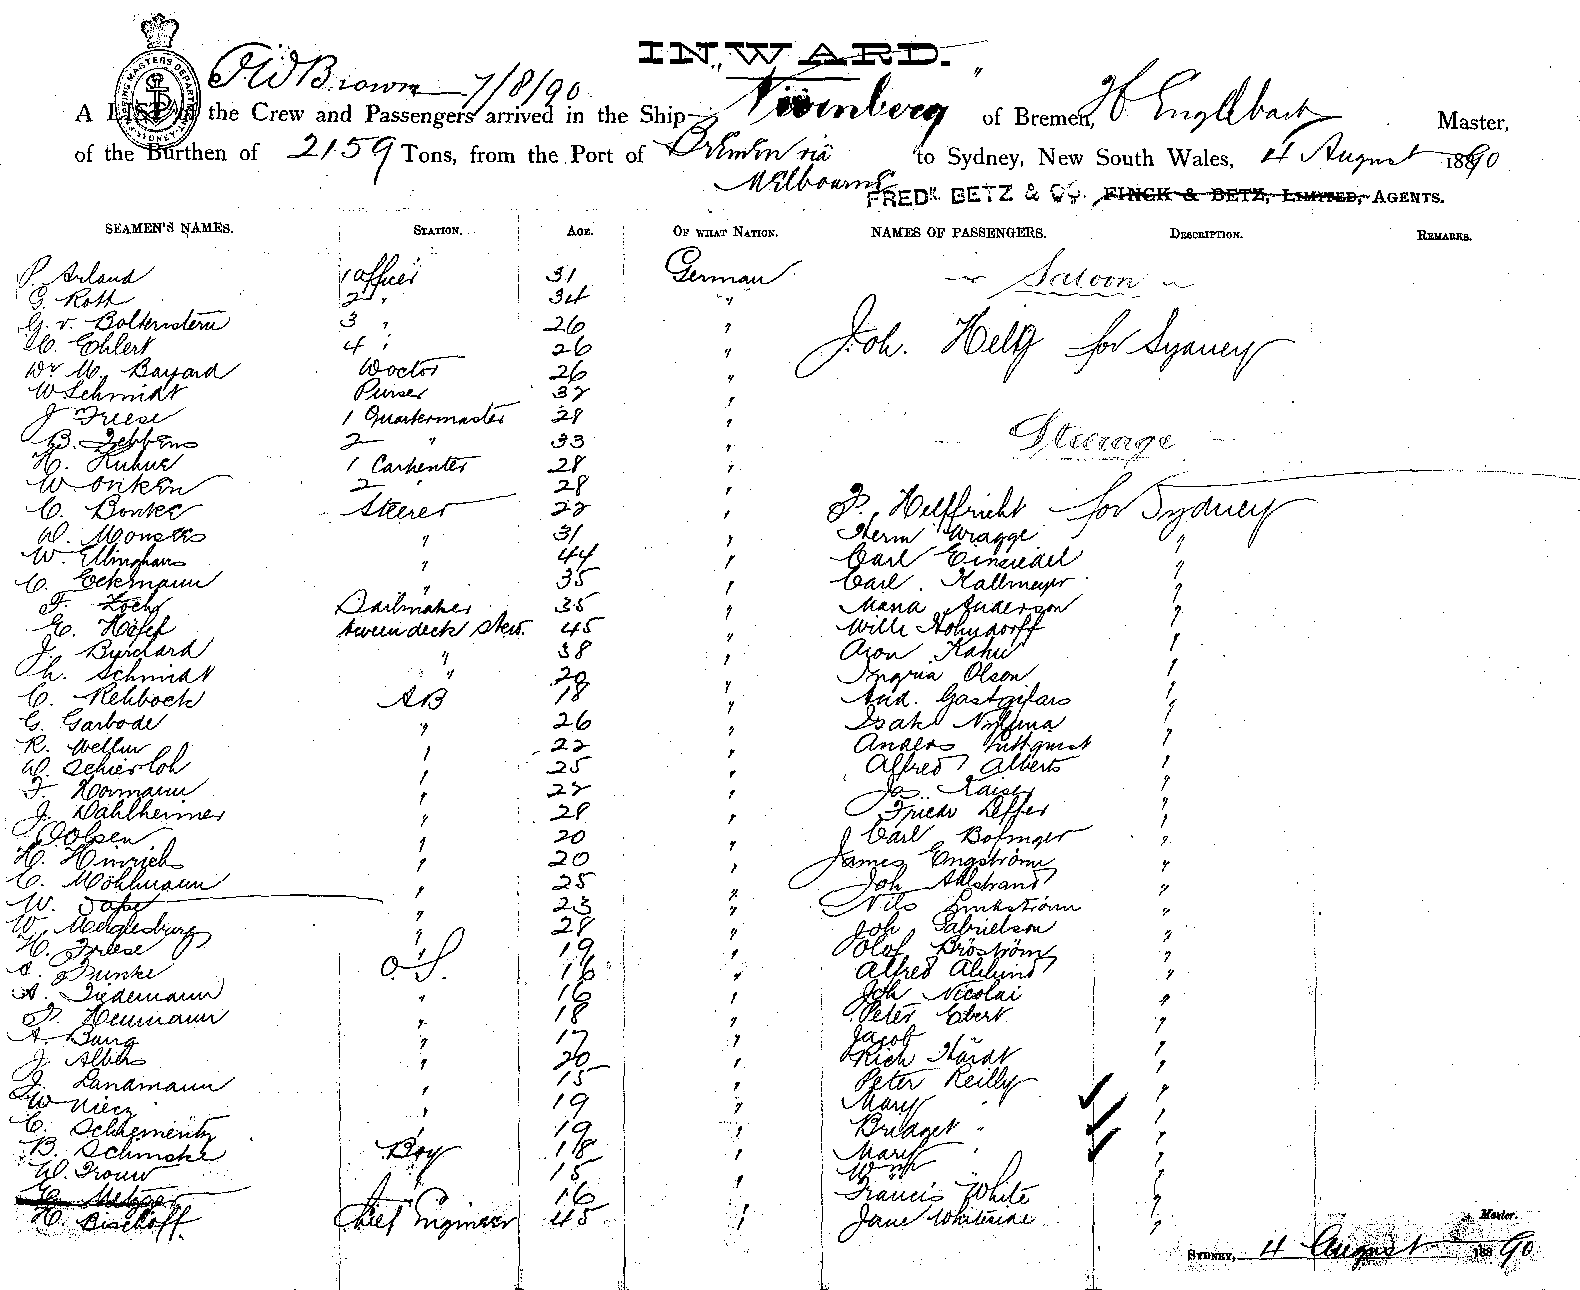 INWARD.
7/8/90
A LIST of the Crew and Passengers arrived in the Ship Nürnberg of Bremen, H Englebart Master,
of the Burthen of 2159 Tons, from the Port of Bremen via Melbourne to Sydney, New South Wales, 4 August 1890
FREDK BETZ & Co. FINCK & BETZ, LIMITED, AGENTS.
SEAMEN'S NAMES. STATION. AGE. OF WHAT NATION. NAMES OF PASSENGERS. DESCRIPTION. REMARKS.
P. Arland 1 Officer 31 German Saloon
G. Roth 2 " 34 "
G. v. Bolkenstern 3 " 26 "
C. Ehlert 4 " 26 " Joh. Helg for Sydney
Dr M. Bayard Doctor 26 "
W Schmidt Purser 32 "
J Freese 1 Quartermaster 28 "
B. 2 " 33 " Steerage
H. Kuhne 1 Carpenter 28 "
W Onken 2 " 28 "
C. Bonke Steerer 22 " P. Helffricht for Sydney
W. 31 " Herm Wragge "
W. Ellinghaus " 44 " Carl Einsiedel "
C. Eckmann " 35 " Carl Kallmeyer "
F. Sailmaker 35 " Maria Anderson "
E. tween deck stew. 45 " Willi Hohndorff "
J. Burchard " 38 " Aron Kahn "
Ch. Schmidt " 20 " Ingria Olson "
C. Rehbock AB 18 " And. "
G. Garbode " 26 " Isak "
R. Wellm " 22 " Anders "
W. Schierloh " 25 " Alfred Alberts "
F. Hormann " 22 " Jas. Kaiser "
J. Dahlheimer " 28 " Friedr Deffer "
Oolsen " 20 " Carl Bofinger "
H. Hinrichs " 20 " James Engström "
C. Möhlmann " 25 " Joh Ahlstrand "
W. Tape " 23 " Nils "
W. " 28 " Joh Gabrielson "
H. Freese " 19 " Olof Broström "
Funke O.S. 16 " Alfred "
A. Tiedemann " 16 " Joh Nicolai "
P. Neumann " 18 " Peter Ebert "
A. Bang " 17 " Jacob "
J. Albers " 20 " Rich Hardt "
J. Landmann " 15 " Peter Reilly "
W 19 " Mary " "
C. " 19 " Bridget " "
B. Schmske Boy 18 " Mary " "
W. Trouw " 15 " Wm "
Metzger 16 Francis White "
H. Bischoff. Chief Engineer 45 " Jane Whiteside "
Master.
SYDNEY, 4 August 1890